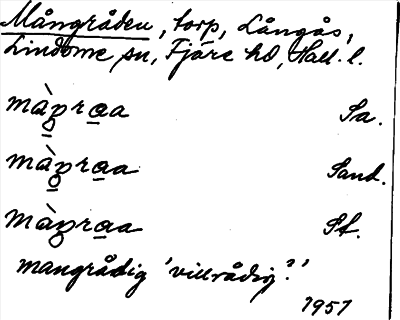 Mångråden, torp, Långås,
Lindome sn, Fjäre hd, Hall. l.
màŋraa Sa.
màŋraa Sand.
màŋraa St.
mangrådig 'villrådig?'
1957